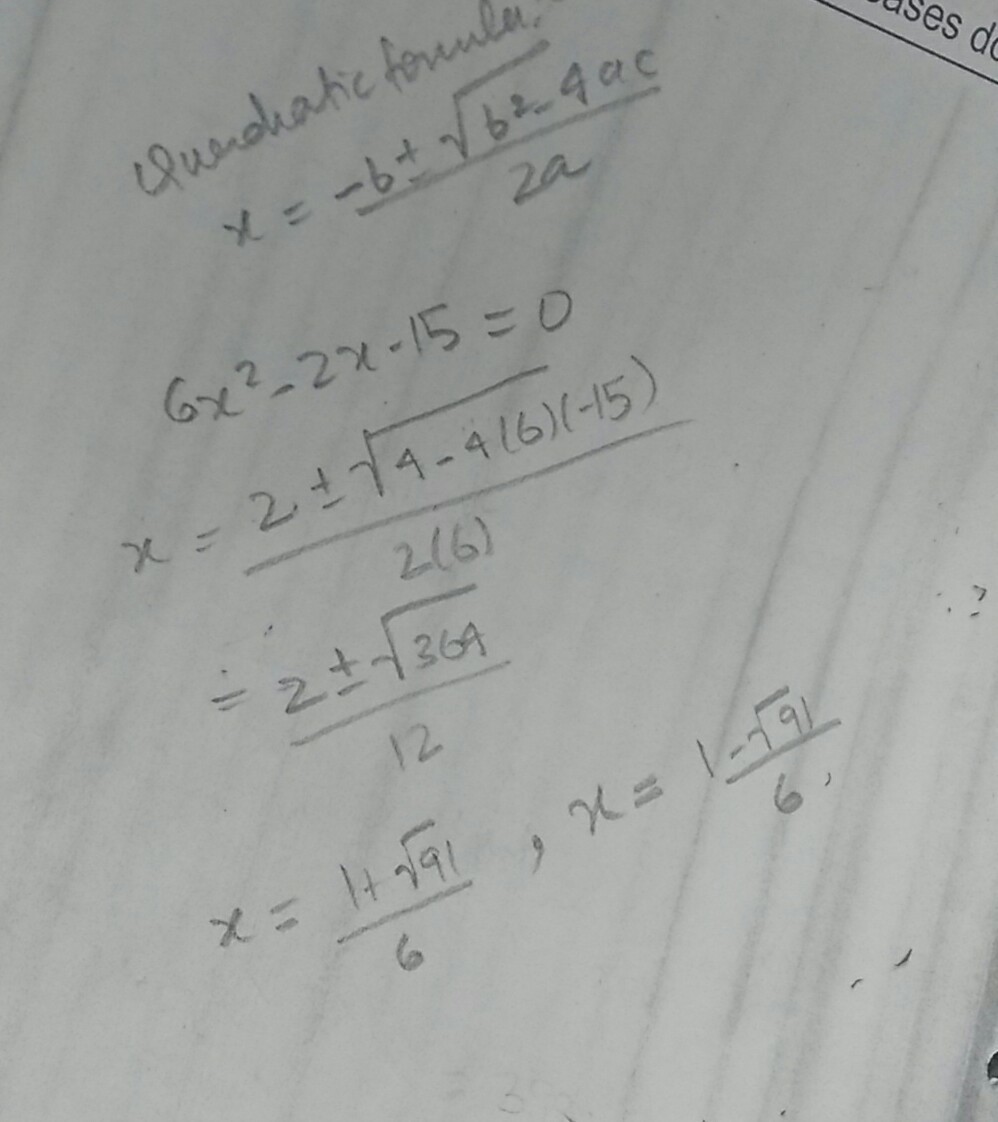 ases do
Quadratic formula.
x = -b ± √b² - 4ac / 2a
6x² - 2x - 15 = 0
x = 2 ± √4 - 4(6)(-15) / 2(6)
= 2 ± √364 / 12
x = 1 + √91 / 6 , x = 1 - √91 / 6 .